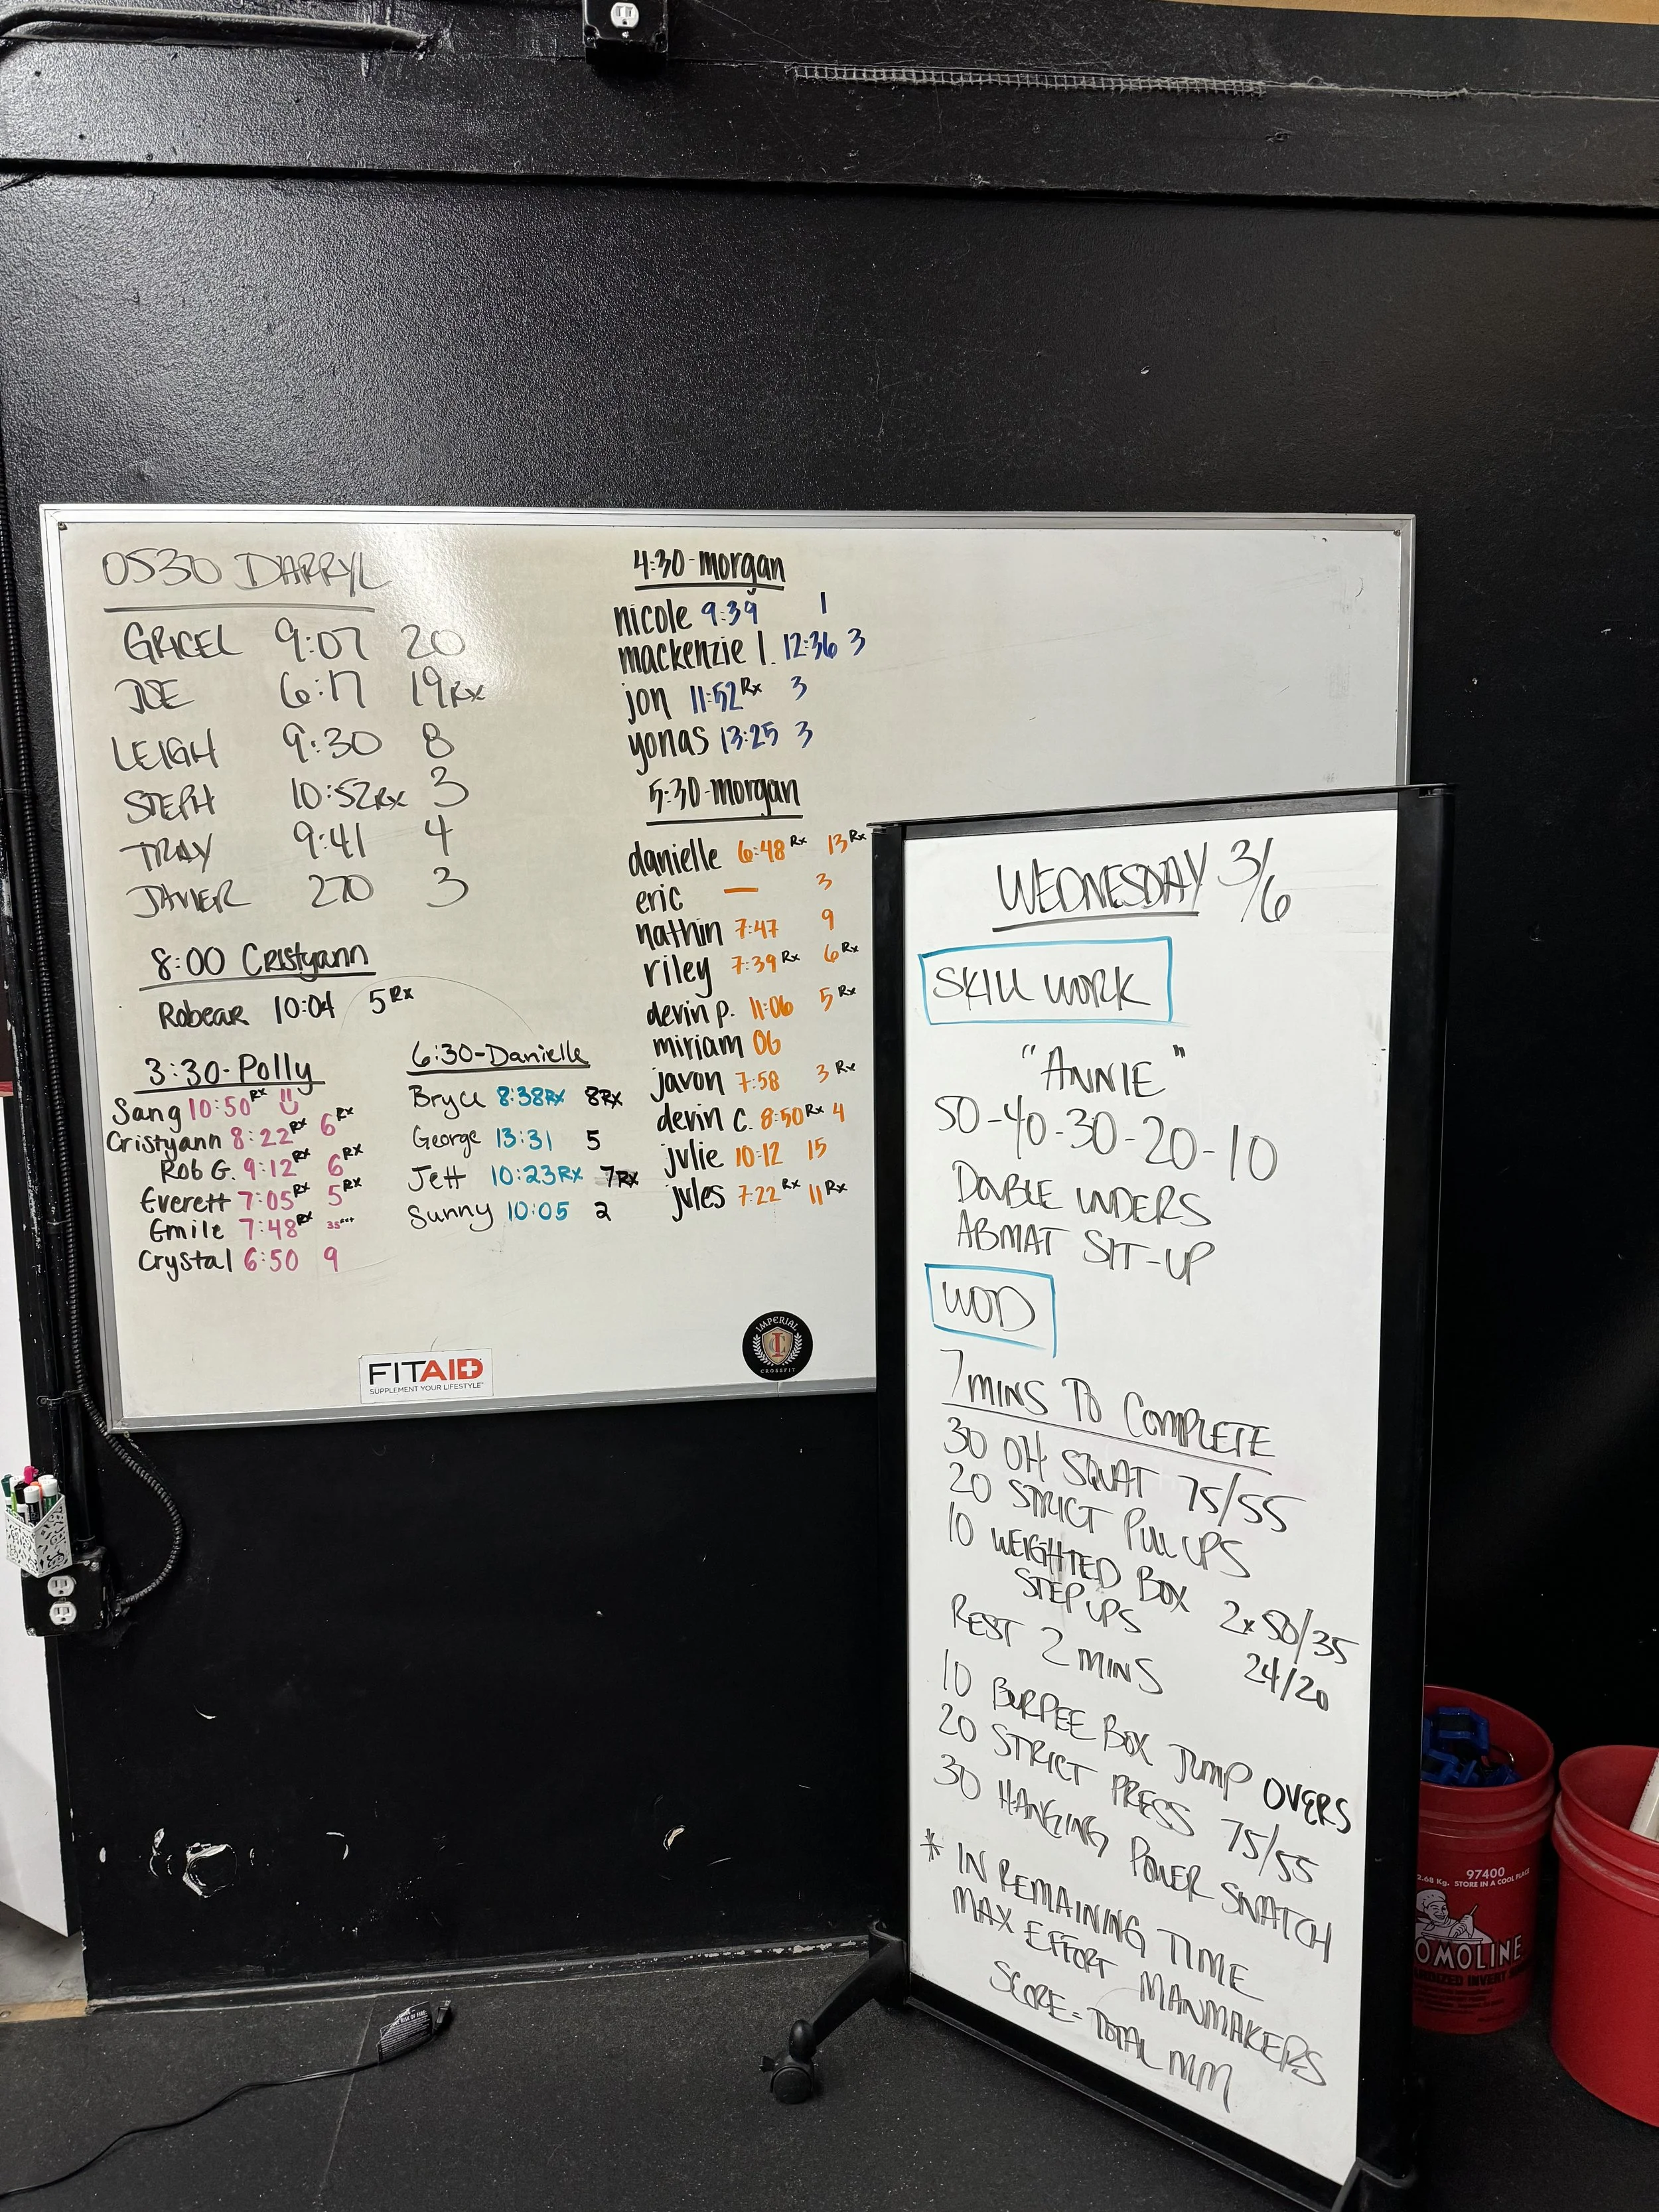 0530 DARRYL
GRICEL 9:07 20
JOE 6:17 19 Rx
LEIGH 9:30 8
STEPH 10:52 Rx 3
TRAY 9:41 4
JAVIER 270 3
8:00 Cristyann
Robear 10:04 5 Rx
3:30-Polly
Sang 10:50 Rx
Cristyann 8:22 Rx 6 Rx
Rob G. 9:12 Rx 6 Rx
Everett 7:05 Rx 5 Rx
Emile 7:48 Rx
Crystal 6:50 9
6:30-Danielle
Bryce 8:38 Rx 8 Rx
George 13:31 5
Jett 10:23 Rx 7 Rx
Sunny 10:05 2
4:30-morgan
nicole 9:39 1
mackenzie l. 12:36 3
jon 11:52 Rx 3
yonas 13:25 3
5:30-morgan
danielle 6:48 Rx 13 Rx
eric — 3
nathin 7:47 9
riley 7:39 Rx 6 Rx
devin p. 11:06 5 Rx
miriam 06
javon 7:58 3 Rx
devin c. 8:50 Rx 4
julie 10:12 15
jules 7:22 Rx 11 Rx
FITAID
SUPPLEMENT YOUR LIFESTYLE
IMPERIAL
CROSSFIT
WEDNESDAY 3/6
SKILL WORK
"ANNIE"
50-40-30-20-10
DOUBLE UNDERS
ABMAT SIT-UP
WOD
7 MINS TO COMPLETE
30 OH SQUAT 75/55
20 STRICT PULL UPS
10 WEIGHTED BOX
STEP UPS 2x50/35
24/20
REST 2 MINS
10 BURPEE BOX JUMP OVERS
20 STRICT PRESS 75/55
30 HANGING POWER SNATCH
* IN REMAINING TIME
MAX EFFORT MANMAKERS
SCORE = TOTAL MM
97400
2.68 Kg. STORE IN A COOL PLACE
OMOLINE